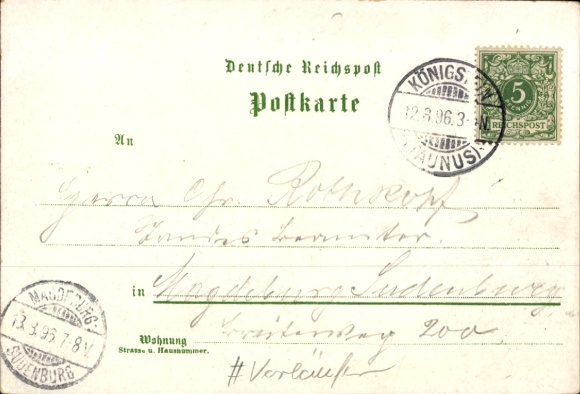 Deutsche Reichspost
Postkarte
KÖNIGSTEIN
12.8.96.3-4N.
(TAUNUS)
5
PFENNIG
REICHSPOST
An
Herrn Chr. Rothkopf
Landes Beamter.
in Magdeburg Sudenburg
Breiteweg 200
Wohnung
Strasse u. Hausnummer.
# Vorläufer
MAGDEBURG-
13.8.96.7-8V.
SUDENBURG